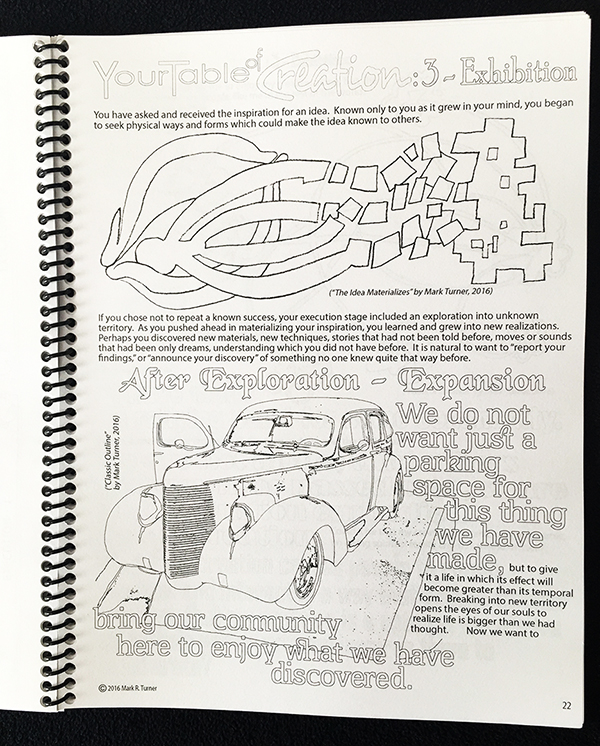 Your Table of Creation: 3 ~ Exhibition
You have asked and received the inspiration for an idea. Known only to you as it grew in your mind, you began
to seek physical ways and forms which could make the idea known to others.
("The Idea Materializes" by Mark Turner, 2016)
If you chose not to repeat a known success, your execution stage included an exploration into unknown
territory. As you pushed ahead in materializing your inspiration, you learned and grew into new realizations.
Perhaps you discovered new materials, new techniques, stories that had not been told before, moves or sounds
that had been only dreams, understanding which you did not have before. It is natural to want to "report your
findings," or "announce your discovery" of something no one knew quite that way before.
After Exploration - Expansion
("Classic Outline"
by Mark Turner, 2016)
We do not
want just a
parking
space for
this thing
we have
made, but to give
it a life in which its effect will
become greater than its temporal
form. Breaking into new territory
opens the eyes of our souls to
realize life is bigger than we had
thought. Now we want to
bring our community
here to enjoy what we have
discovered.
© 2016 Mark R. Turner
22